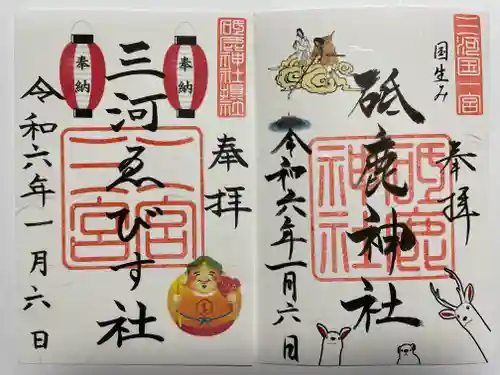 奉拝
三河ゑびす社
二宮
三宮
令和六年一月六日
奉納
奉納
三河国一宮
国生み
奉拝
砥鹿神社
砥鹿
神社
令和六年一月六日